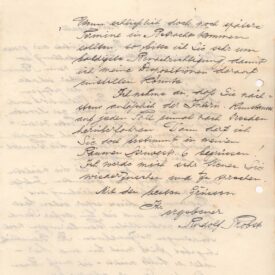 Wenn schließlich doch noch spätere
Termine in Betracht kommen
sollten, so bitte ich Sie sehr um
baldigste Benachrichtigung damit
ich meine Dispositionen darauf
einstellen könnte.
Ich nehme an, daß Sie nächstens
anläßlich der Jahres Kunstausst
auf jeden Fall einmal nach Dresden
herüberfahren. Dann darf ich
Sie doch bestimmt in meinen
Räumen begrüssen!
Ich werde mich sehr freuen Sie
wiederzusehen und zu sprechen
Mit den besten Grüssen
Ihr
ergebener
Rudolf Probst